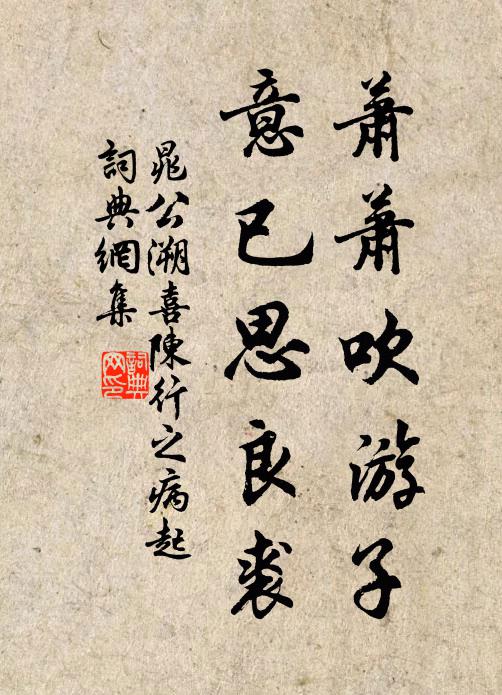 蕭蕭吹游子
意已思良裘
晁公溯喜陳行之病起
詞典網集
詞典
网印